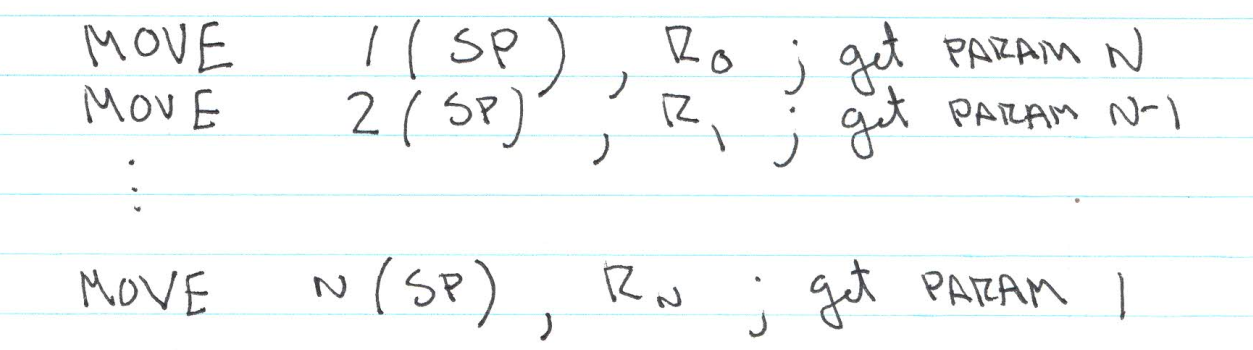 MOVE 1(SP), R0 ; get PARAM N
MOVE 2(SP), R1 ; get PARAM N-1
⋮
MOVE N(SP), RN ; get PARAM 1